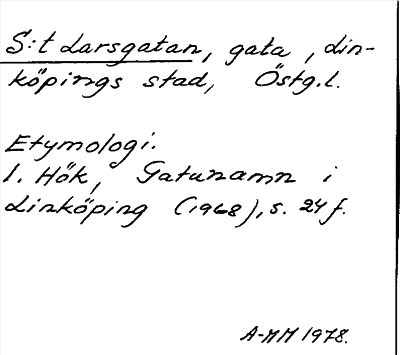 S:t Larsgatan, gata, Lin-
köpings stad, Östg.l.
Etymologi.
I. Hök, Gatunamn i
Linköping (1968), s. 24 f.
A-MM 1978.